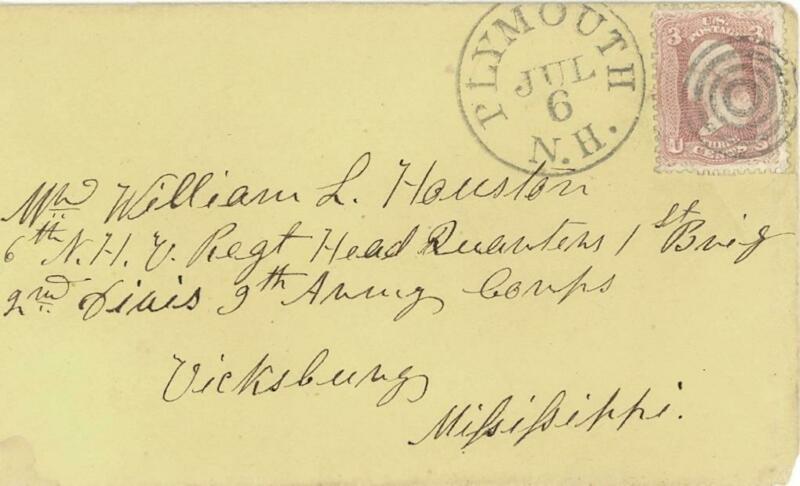 PLYMOUTH
JUL
6
N.H.
U.S.
POSTAGE
3 3
U S
CENTS
Mr. William L. Houston
6th N. H. V. Regt Head Quarters 1st Brig
2nd Divis 9th Army Corps
Vicksburg
Mississippi.